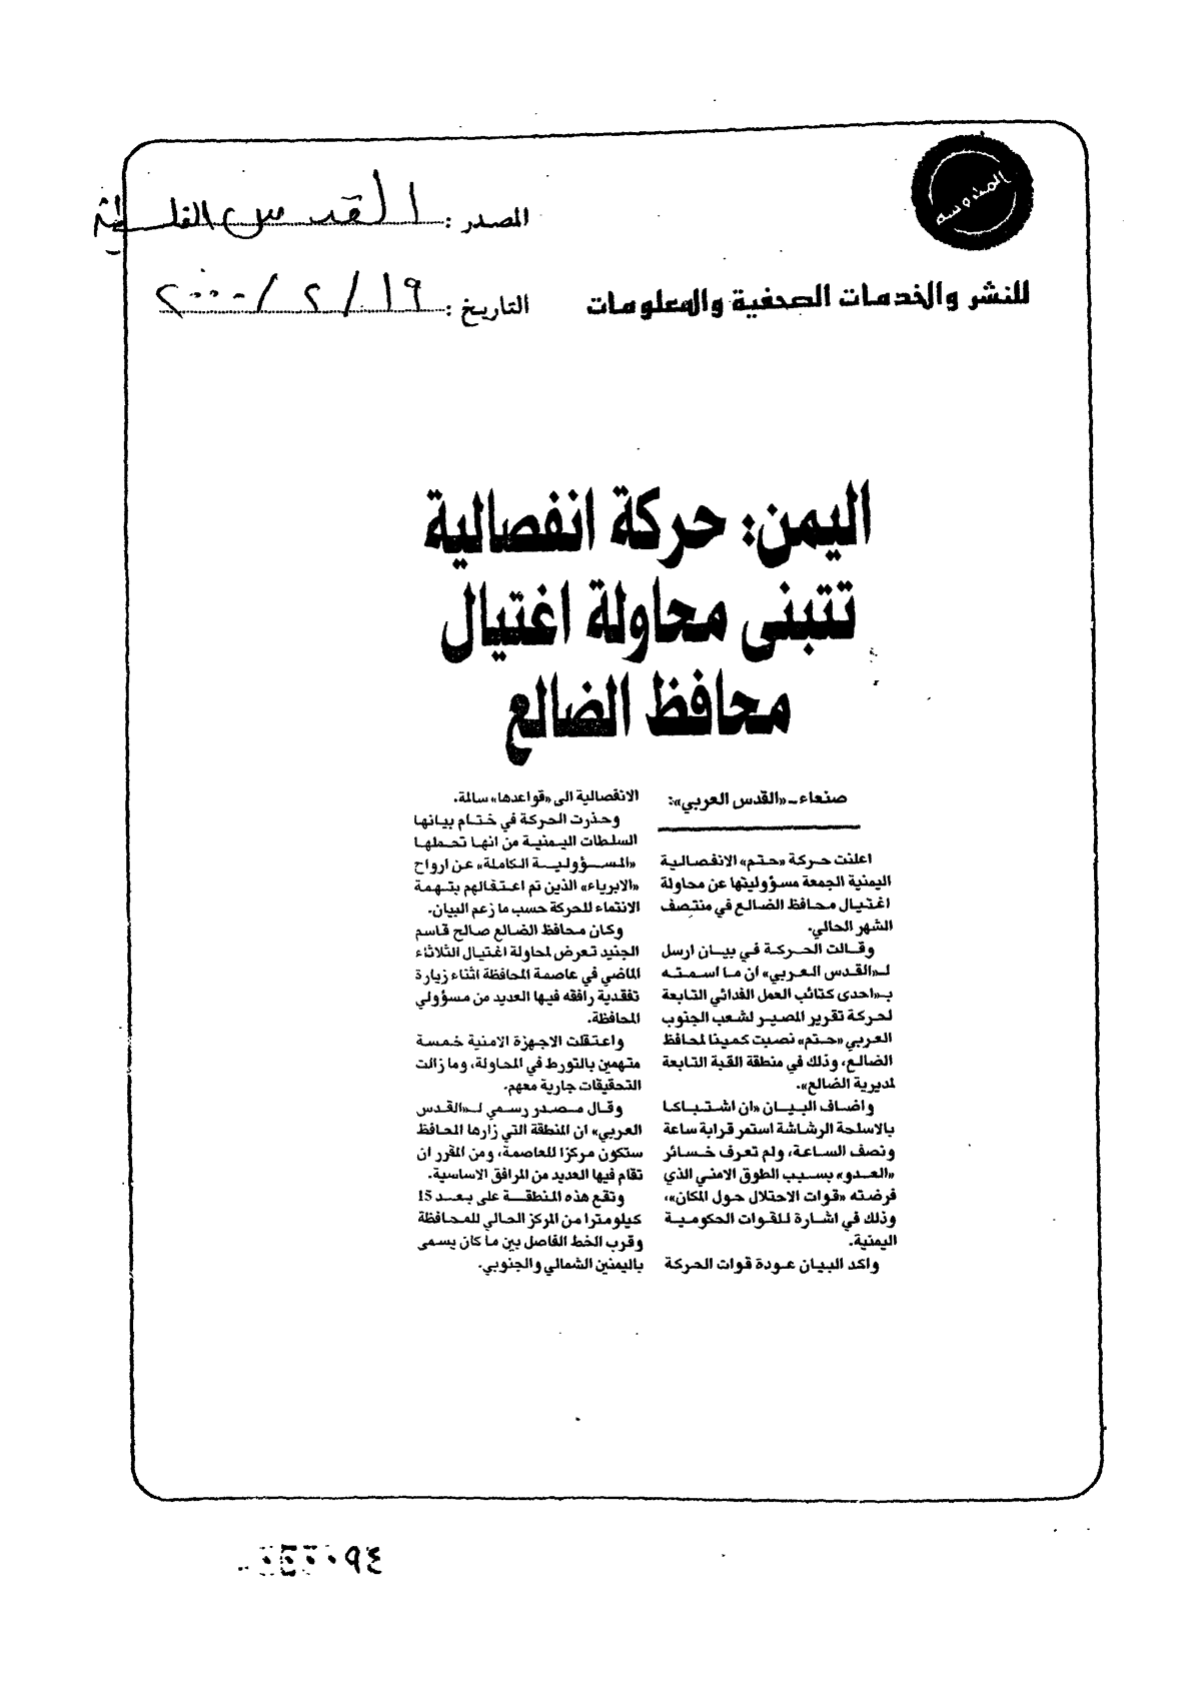 المدوسة
المصدر : القدس الفلسطينية
للنشر والخدمات الصحفية والمعلومات
التاريخ : ١٩ / ٢ / ٢٠٠٠
اليمن: حركة انفصالية
تتبنى محاولة اغتيال
محافظ الضالع
صنعاء ـ «القدس العربي»:
اعلنت حركة «حتم» الانفصالية
اليمنية الجمعة مسؤوليتها عن محاولة
اغتيال محافظ الضالع في منتصف
الشهر الحالي.
وقالت الحركة في بيان ارسل
لـ«القدس العربي» ان ما اسمته
بـ«احدى كتائب العمل الفدائي التابعة
لحركة تقرير المصير لشعب الجنوب
العربي «حتم» نصبت كمينا لمحافظ
الضالع، وذلك في منطقة القبة التابعة
لمديرية الضالع».
واضاف البيان «ان اشتباكا
بالاسلحة الرشاشة استمر قرابة ساعة
ونصف الساعة، ولم تعرف خسائر
«العدو» بسبب الطوق الامني الذي
فرضته «قوات الاحتلال حول المكان»،
وذلك في اشارة للقوات الحكومية
اليمنية.
واكد البيان عودة قوات الحركة
الانفصالية الى «قواعدها» سالمة.
وحذرت الحركة في ختام بيانها
السلطات اليمنية من انها تحملها
«المسؤولية الكاملة» عن ارواح
«الابرياء» الذين تم اعتقالهم بتهمة
الانتماء للحركة حسب ما زعم البيان.
وكان محافظ الضالع صالح قاسم
الجنيد تعرض لمحاولة اغتيال الثلاثاء
الماضي في عاصمة المحافظة اثناء زيارة
تفقدية رافقه فيها العديد من مسؤولي
المحافظة.
واعتقلت الاجهزة الامنية خمسة
متهمين بالتورط في المحاولة، وما زالت
التحقيقات جارية معهم.
وقال مصدر رسمي لـ«القدس
العربي» ان المنطقة التي زارها المحافظ
ستكون مركزا للعاصمة، ومن المقرر ان
تقام فيها العديد من المرافق الاساسية.
وتقع هذه المنطقة على بعد 15
كيلومترا من المركز الحالي للمحافظة
وقرب الخط الفاصل بين ما كان يسمى
باليمنين الشمالي والجنوبي.